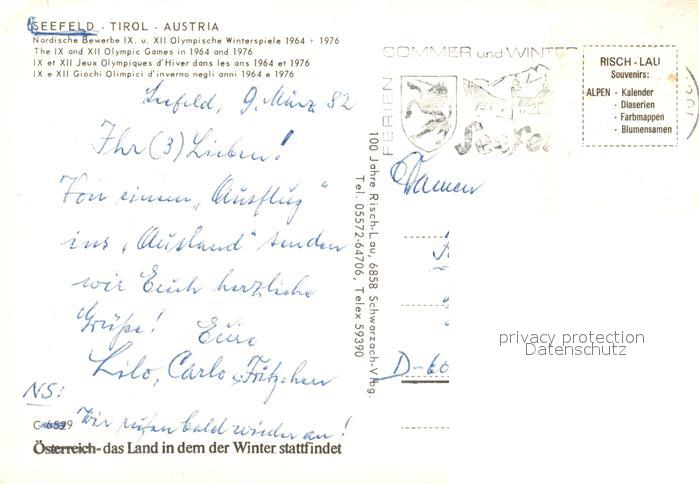 SEEFELD - TIROL - AUSTRIA
Nordische Bewerbe IX. u. XII Olympische Winterspiele 1964 + 1976
The IX and XII Olympic Games in 1964 and 1976
IX et XII Jeux Olympiques d'Hiver dans les ans 1964 et 1976
IX e XII Giochi Olimpici d'inverno negli anni 1964 e 1976
Seefeld, 9. März 82
Ihr (3) Lieben!
Von einem „Ausflug"
ins „Ausland" senden
wir Euch herzliche
Grüße! Eure
Lilo, Carlo
NS:
Wir rufen bald wieder an!
Österreich - das Land in dem der Winter stattfindet
100 Jahre Risch-Lau, 6858 Schwarzach-Vlbg.
Tel. 05572-64706, Telex 59390
SOMMER und WINTER
FERIEN
Seefel
RISCH - LAU
Souvenirs:
ALPEN - Kalender
- Diaserien
- Farbmappen
- Blumensamen
D-60
privacy protection
Datenschutz